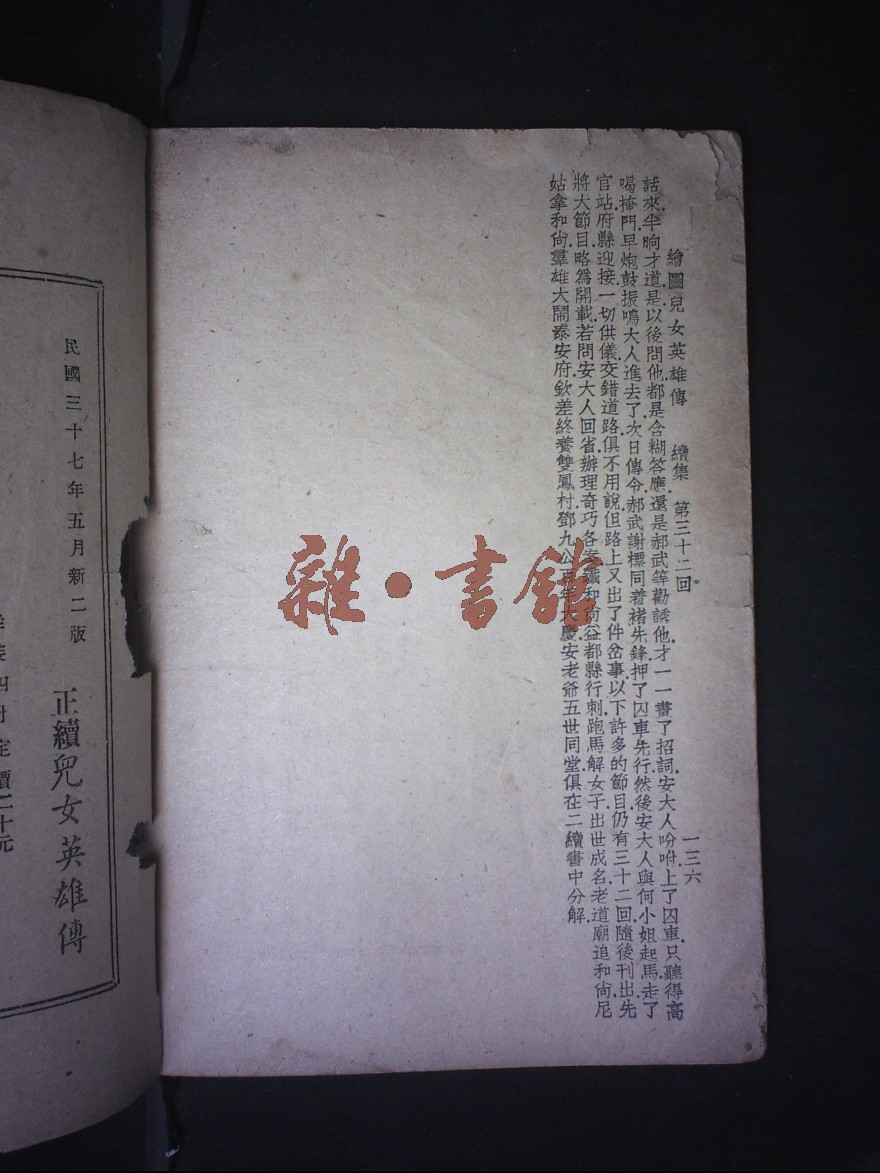 繪圖兒女英雄傳 續集 第三十二回 一三六
話來.半晌才道是.以後問他.都是含糊答應.還是郝武等勸誘他.才一一書了招詞.安大人吩咐上了囚車.只聽得高
喝掩門.早炮鼓振鳴.大人進去了.次日傳令.郝武謝標同着褚先鋒.押了囚車先行.然後安大人與何小姐起馬.走了
官站.府縣迎接.一切供儀.交錯道路.俱不用說.但路上又出了件岔事.以下許多的節目.仍有三十二回.隨後刊出.先
將大節目.略爲開載.若問安大人回省.辦理奇巧各案.讖和尙益都縣行刺.跑馬解女子出世成名.老道廟追和尙.尼
姑拿和尙.羣雄大鬧泰安府.欽差終養雙鳳村.鄧九公百年大慶.安老爺五世同堂.俱在二續書中分解.
雜·書館
民國三十七年五月新二版
正續兒女英雄傳
裝四册 定價二十元